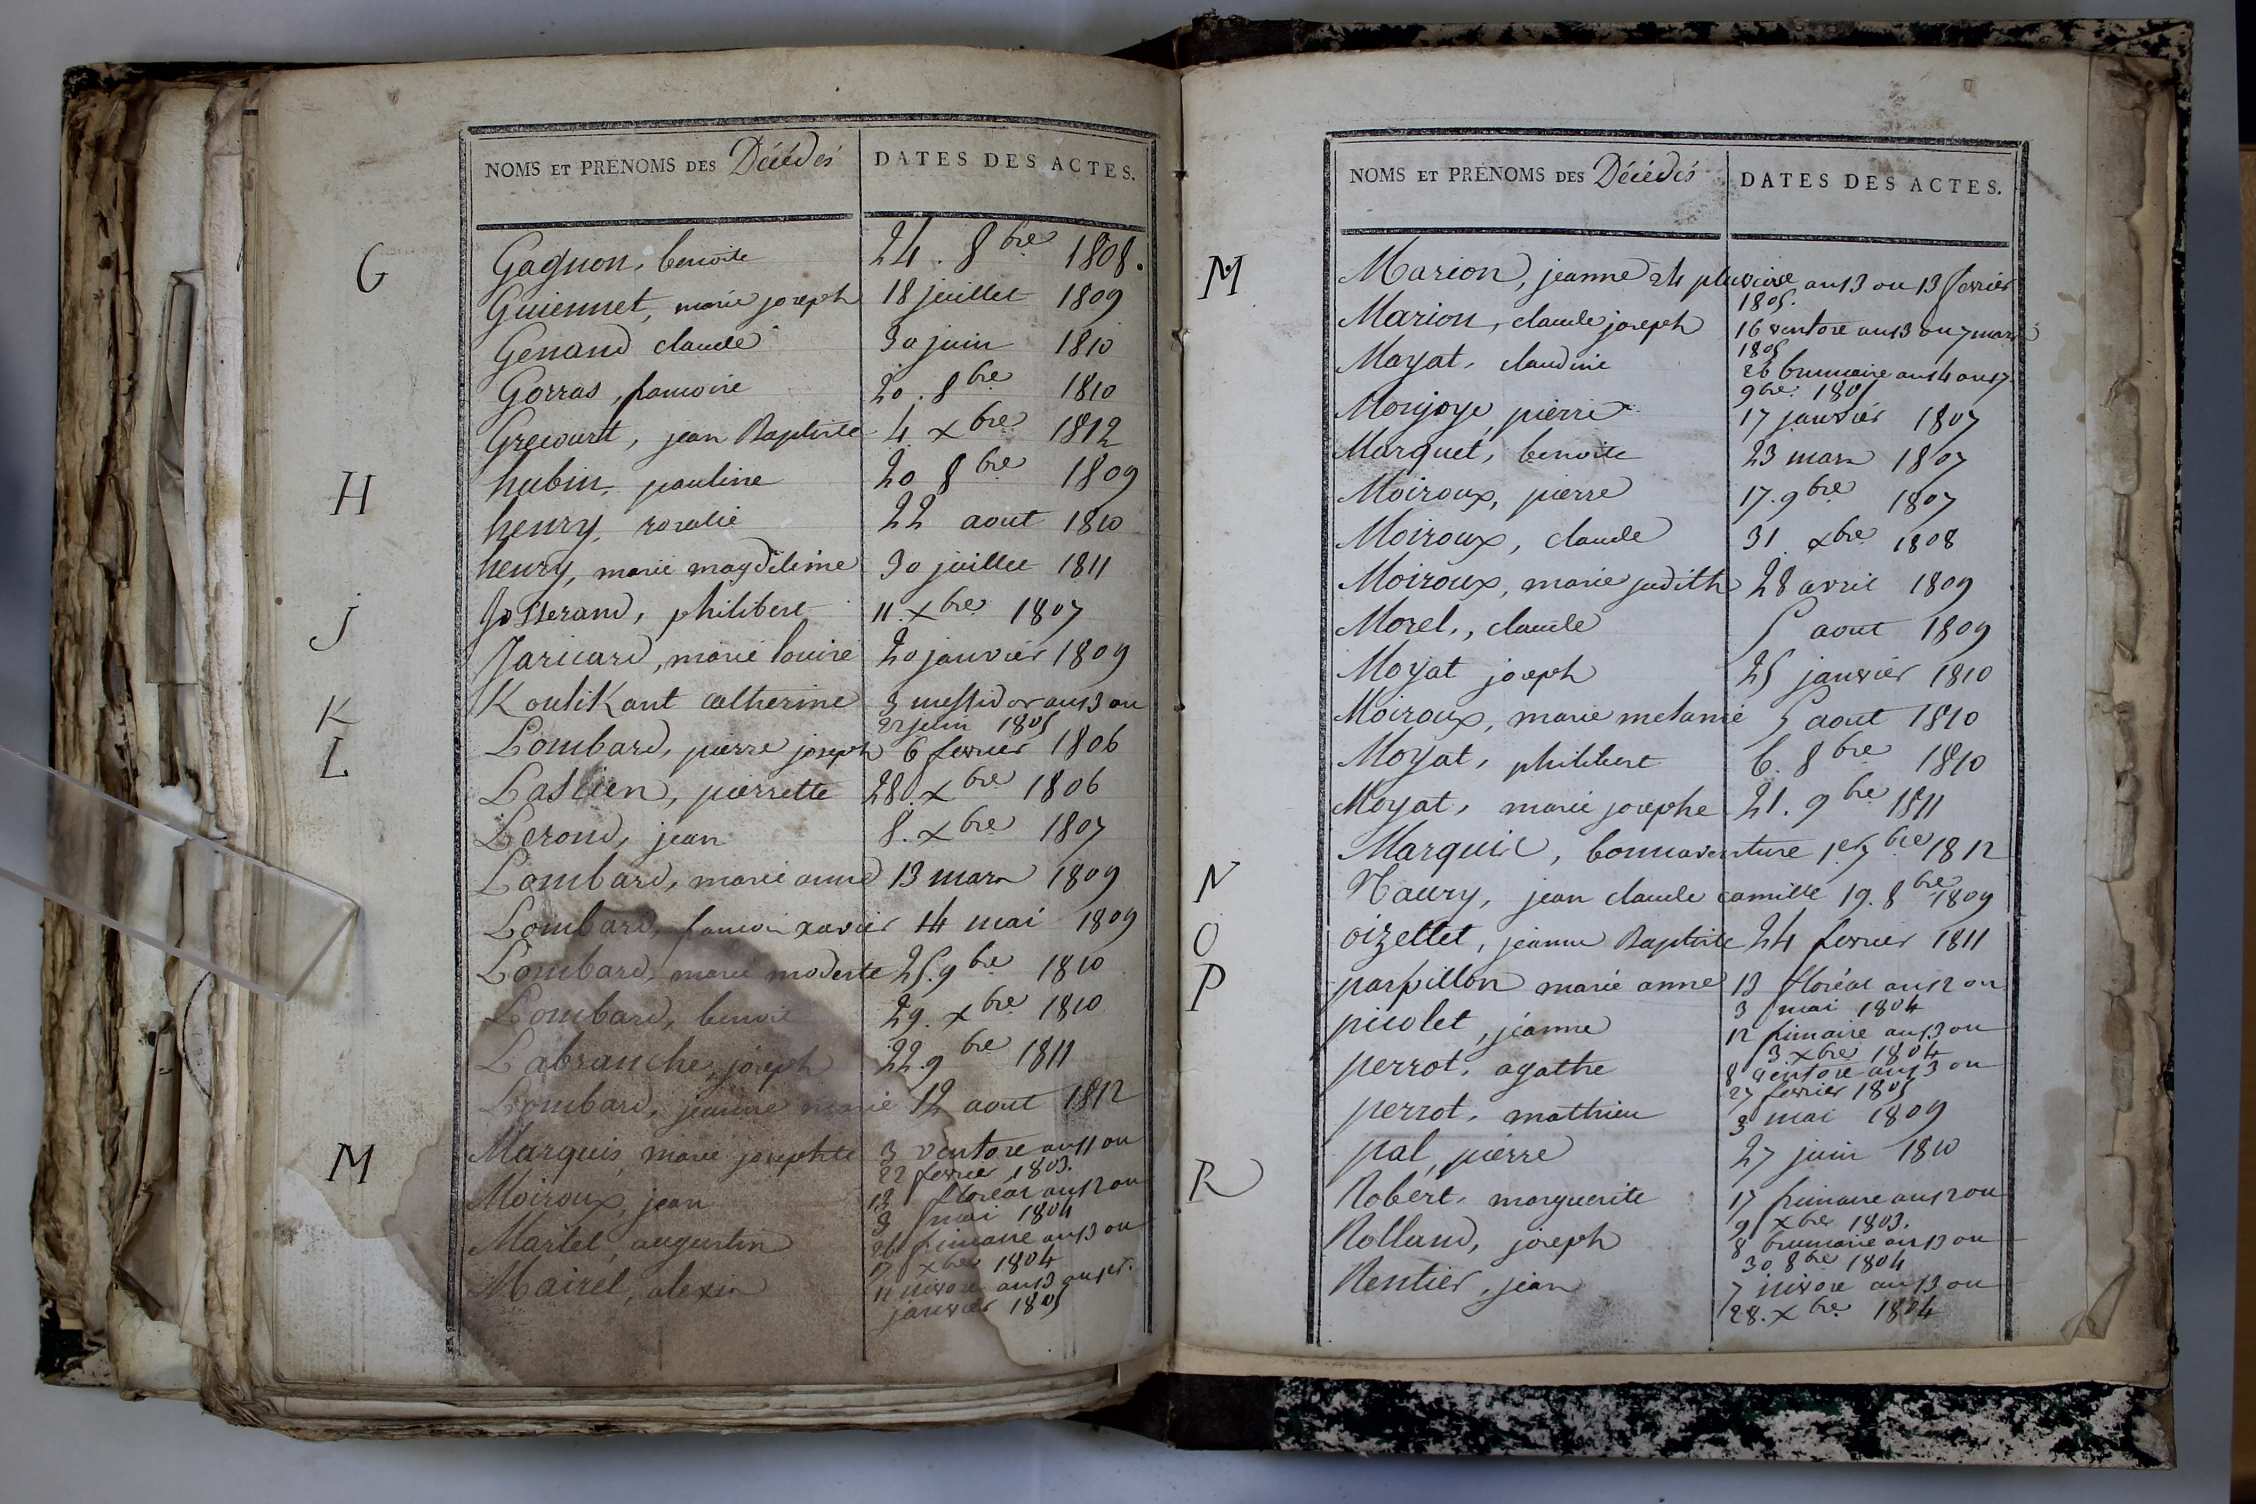 NOMS ET PRÉNOMS DES Décédés
DATES DES ACTES.
G
Gagnon, benoite 24. 8bre 1808.
Guiennet, marie joseph 18 juillet 1809
Genand claude 30 juin 1810
Gorras, francoise 20. 8bre 1810
Grecourt, jean Baptiste 4. xbre 1812
H
hubin, pauline 20 8bre 1809
henry, rosalie 22 aout 1810
henry, marie magdeleine 30 juillet 1811
J
Josserand, philibert 11. xbre 1807
Jaricard, marie louise 20 janvier 1809
K
Koulikant catherine 3 messidor an 13 ou
22 juin 1805
L
Lombard, pierre joseph 6 fevrier 1806
Laslien, pierrette 28. xbre 1806
Lerond, jean 8. xbre 1807
Lombard, marie anne 13 mars 1809
Lombard, francois xavier 14 mai 1809
Lombard, marie modeste 25. 9bre 1810
Lombard, benoit 29. xbre 1810
Labranche, joseph 22. 9bre 1811
Lombard, jeanne marie 12 aout 1812
M
Marquis, marie josephte 3 ventose an 11 ou
22 fevrier 1803.
Moiroux, jean 13 floréal an 12 ou
3 mai 1804
Martel, augustin 26 frimaire an 13 ou
17 xbre 1804
Mairel, alexis 11 nivose an 13 ou 1er.
janvier 1805
NOMS ET PRÉNOMS DES Décédés
DATES DES ACTES.
M
Marion, jeanne 24 pluviose an 13 ou 13 fevrier
1805.
Marion, claude joseph 16 ventose an 13 ou 7 mars
1805
Mayat, claudine 26 brumaire an 14 ou 17
9bre 1805
Monjoye, pierre 17 janvier 1807
Marquet, benoite 23 mars 1807
Moiroux, pierre 17. 9bre 1807
Moiroux, claude 31. xbre 1808
Moiroux, marie judith 28 avril 1809
Morel, claude 5 aout 1809
Moyat joseph 25 janvier 1810
Moiroux, marie melanie 5 aout 1810
Moyat, philibert 6. 8bre 1810
Moyat, marie josephe 21. 9bre 1811
Marquis, bonnaventure 1er 7bre 1812
N
Naury, jean claude camille 19. 8bre 1809
O
oizellet, jeanne Baptiste 24 fevrier 1811
P
parpillon marie anne 13 floréal an 12 ou
3 mai 1804
picolet, jeanne 12 frimaire an 13 ou
3 xbre 1804
perrot, agathe 8 ventose an 13 ou
27 fevrier 1805
perrot, mathieu 3 mai 1809
pal, pierre 27 juin 1810
R
Robert, marguerite 17 frimaire an 12 ou
9 xbre 1803.
Rolland, joseph 8 brumaire an 13 ou
30 8bre 1804
Rentier, jean 7 nivose an 13 ou
28. xbre 1804